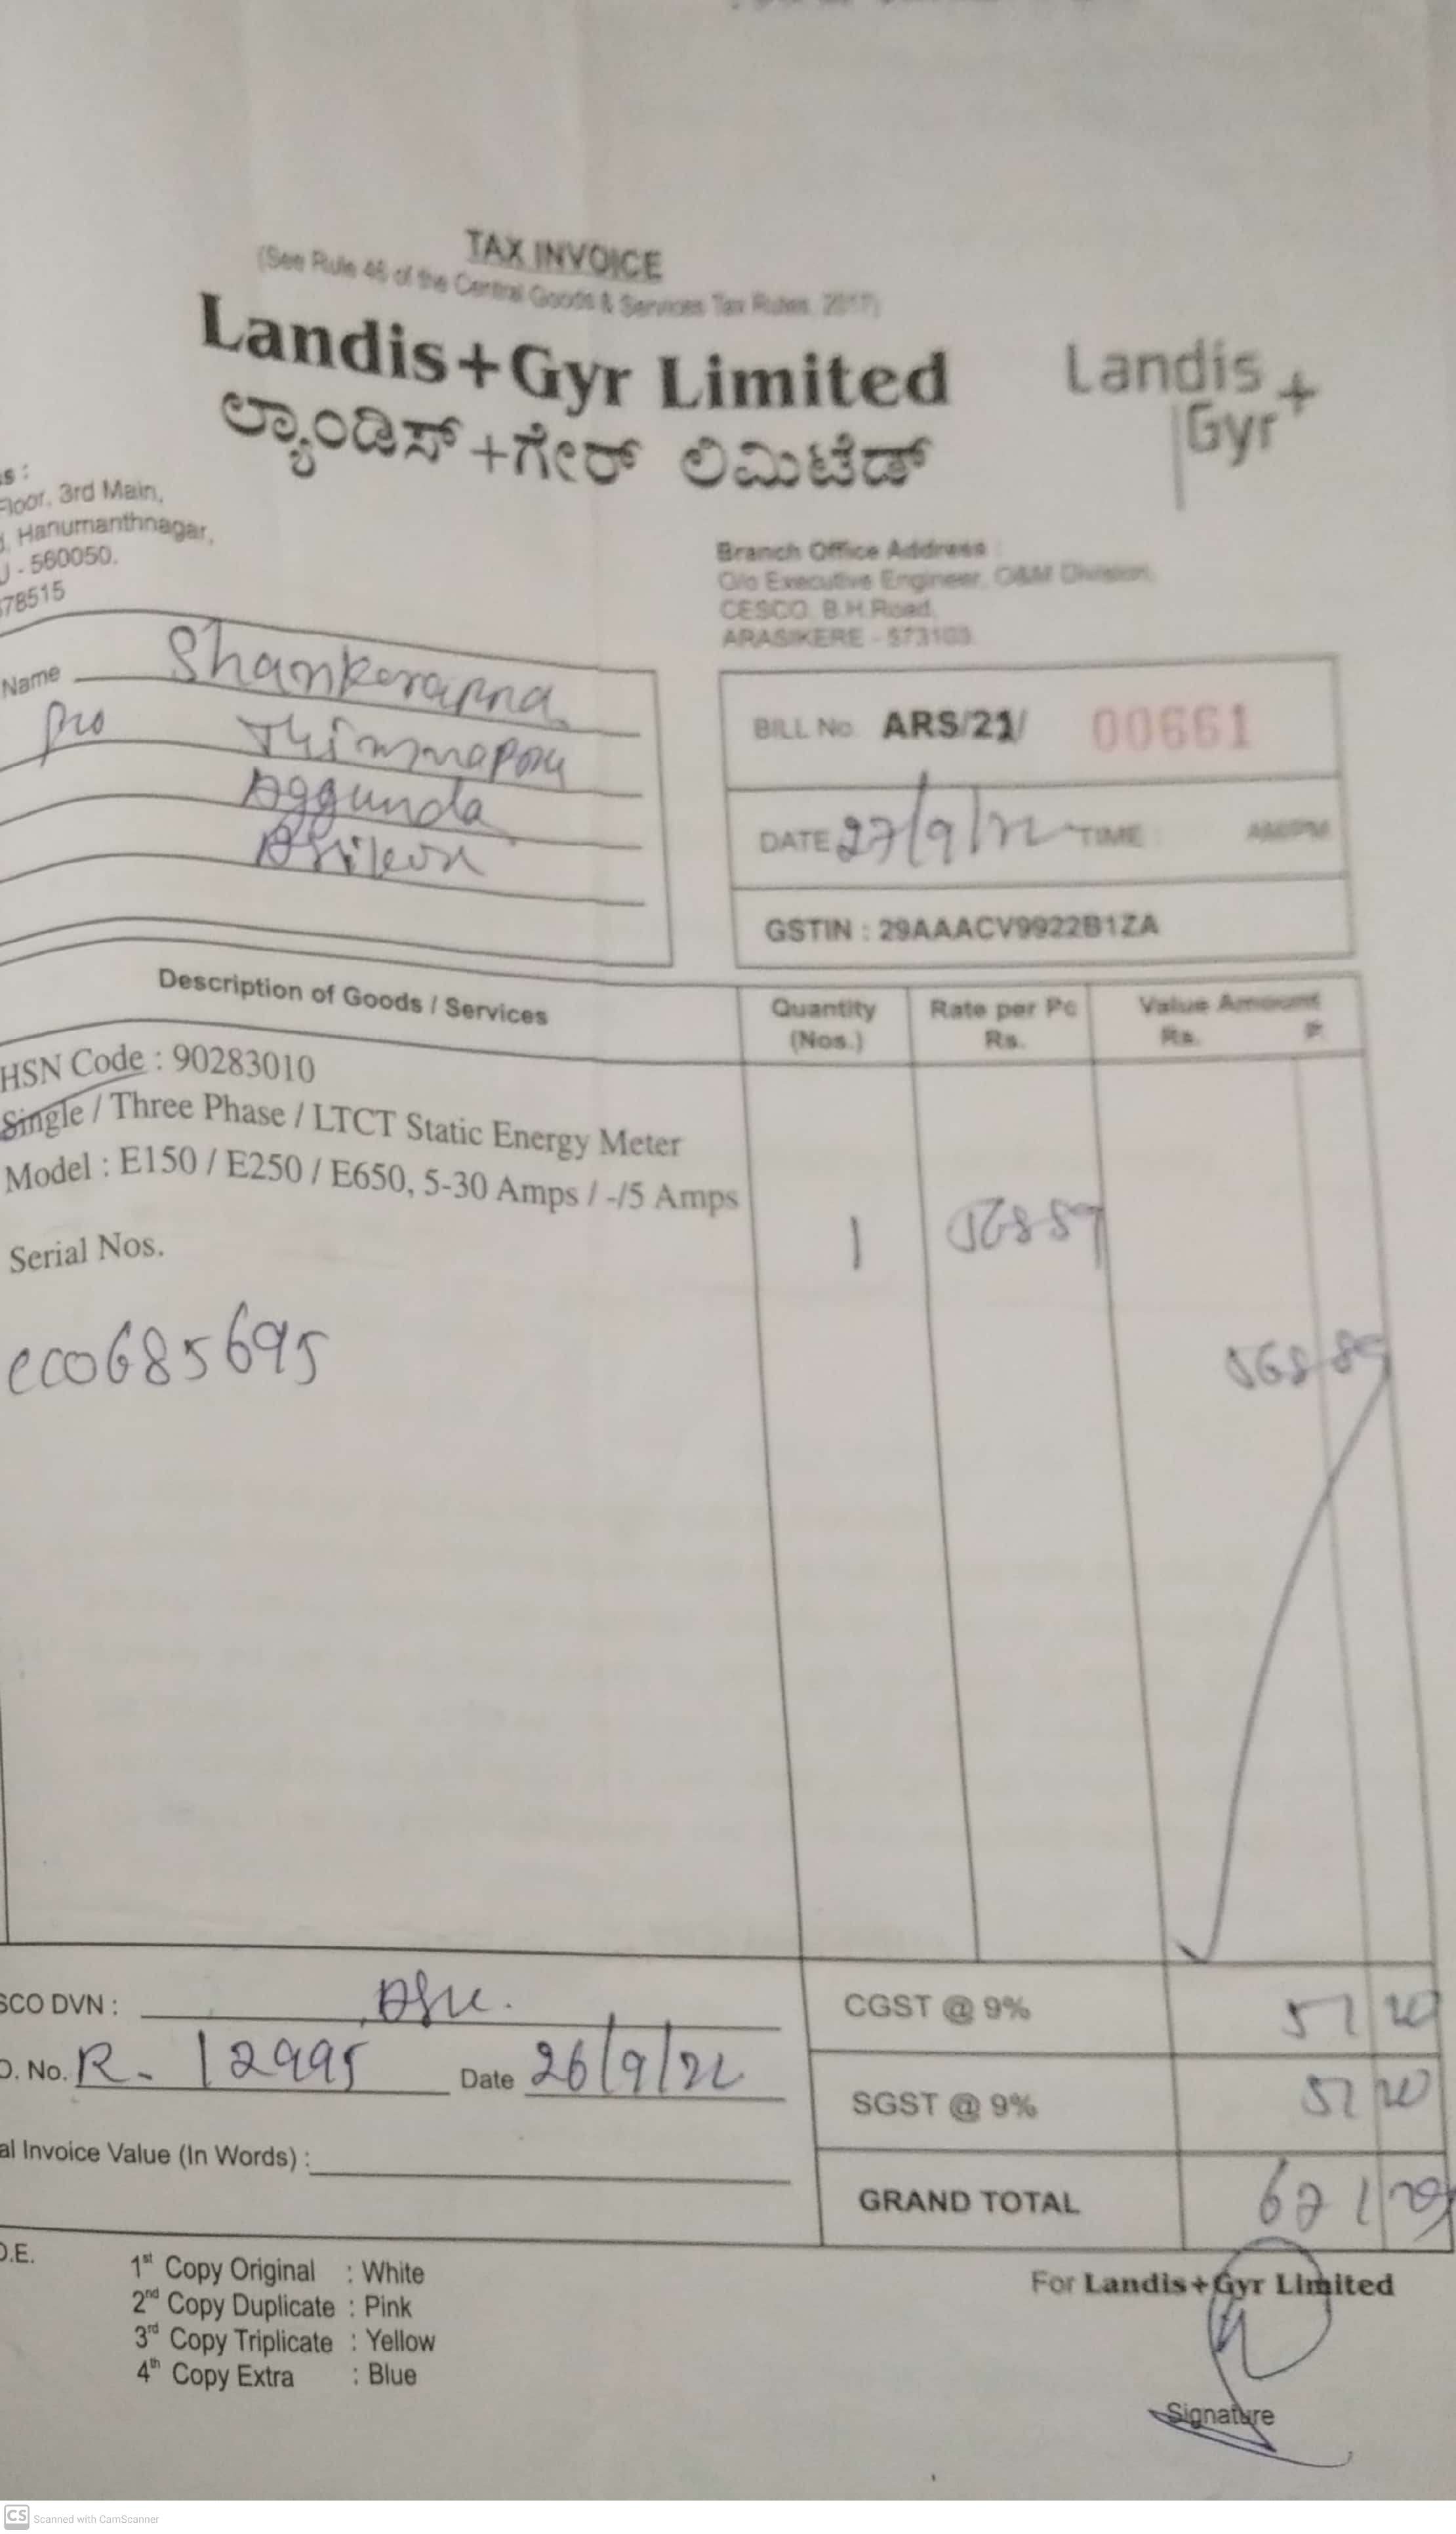 TAX INVOICE
(See Rule 46 of the Central Goods & Services Tax Rules, 2017)
Landis+Gyr Limited
ಲ್ಯಾಂಡಿಸ್+ಗೇರ್ ಲಿಮಿಟೆಡ್
Landis
Gyr+
s :
Floor, 3rd Main,
, Hanumanthnagar,
U - 560050.
78515
Branch Office Address :
O/o Executive Engineer, O&M Division,
CESCO, B.H.Road,
ARASIKERE - 573103.
Name Shankarapna
Thimmapony
Aggunda
BILL No. ARS/21/ 00661
DATE 27/9/22 TIME AM/PM
GSTIN : 29AAACV9922B1ZA
Description of Goods / Services
Quantity (Nos.)
Rate per Pc Rs.
Value Amount Rs. P.
HSN Code : 90283010
Single / Three Phase / LTCT Static Energy Meter
Model : E150 / E250 / E650, 5-30 Amps / -/5 Amps
Serial Nos.
1 568 89
568 89
cc0685695
SCO DVN :
CGST @ 9% 51 20
O. No. R- 12995 Date 26/9/22
SGST @ 9% 51 20
al Invoice Value (In Words) :
GRAND TOTAL 671 29
O.E.
1st Copy Original : White
2nd Copy Duplicate : Pink
3rd Copy Triplicate : Yellow
4th Copy Extra : Blue
For Landis+Gyr Limited
Signature
CS Scanned with CamScanner